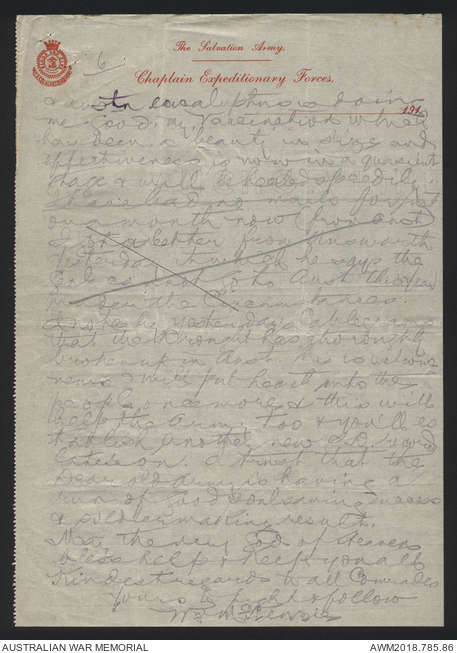 6
The Salvation Army.
Chaplain Expeditionary Forces.
191
eucalyptus is doing
me good, my vaccination which
has been a beauty in size and
effectiveness is now in a quiescent
stage & will be healed speedily
I have had no mails for just
over a month now from Aust
I got a letter from Unsworth
yesterday in which he says the
Genl cannot go to Aust this year
under the circumstances.
I note by yesterday's cablegrams
that the Drought has thoroughly
broken up in Aust this is welcome
news & will put heart into the
people once more & this will
help the Army too & you'll es
tablish another new record
later on. I trust that the
Dear old Army is having a
run of good soulsaving success
& soldiermaking result.
May the very God of Heaven
bless help & keep you all
Kindest regards to all Comrades
Yours to fight & follow
Wm McKenzie
AUSTRALIAN WAR MEMORIAL
AWM2018.785.86